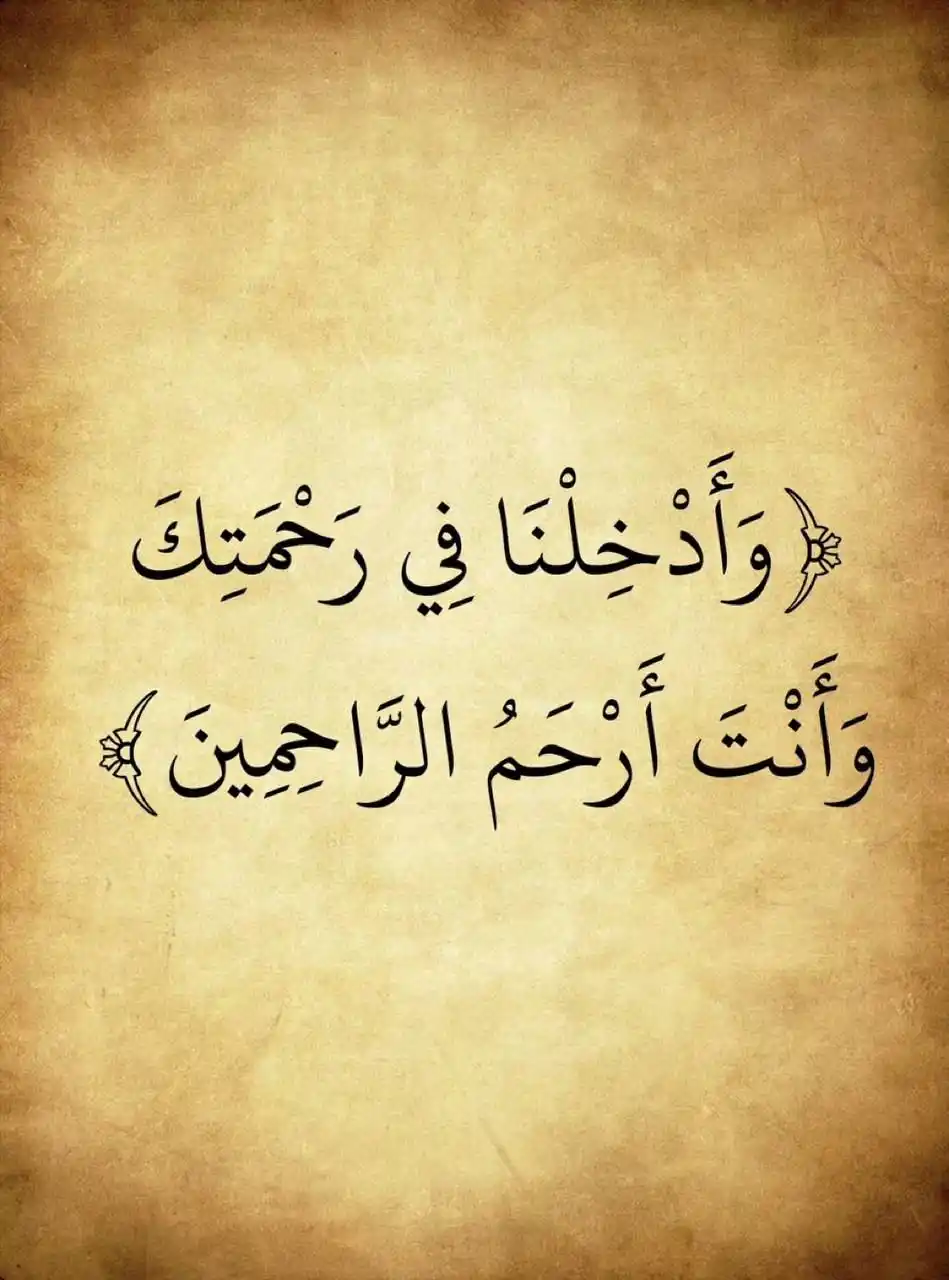 ﴿ وَأَدْخِلْنَا فِي رَحْمَتِكَ
وَأَنْتَ أَرْحَمُ الرَّاحِمِينَ ﴾